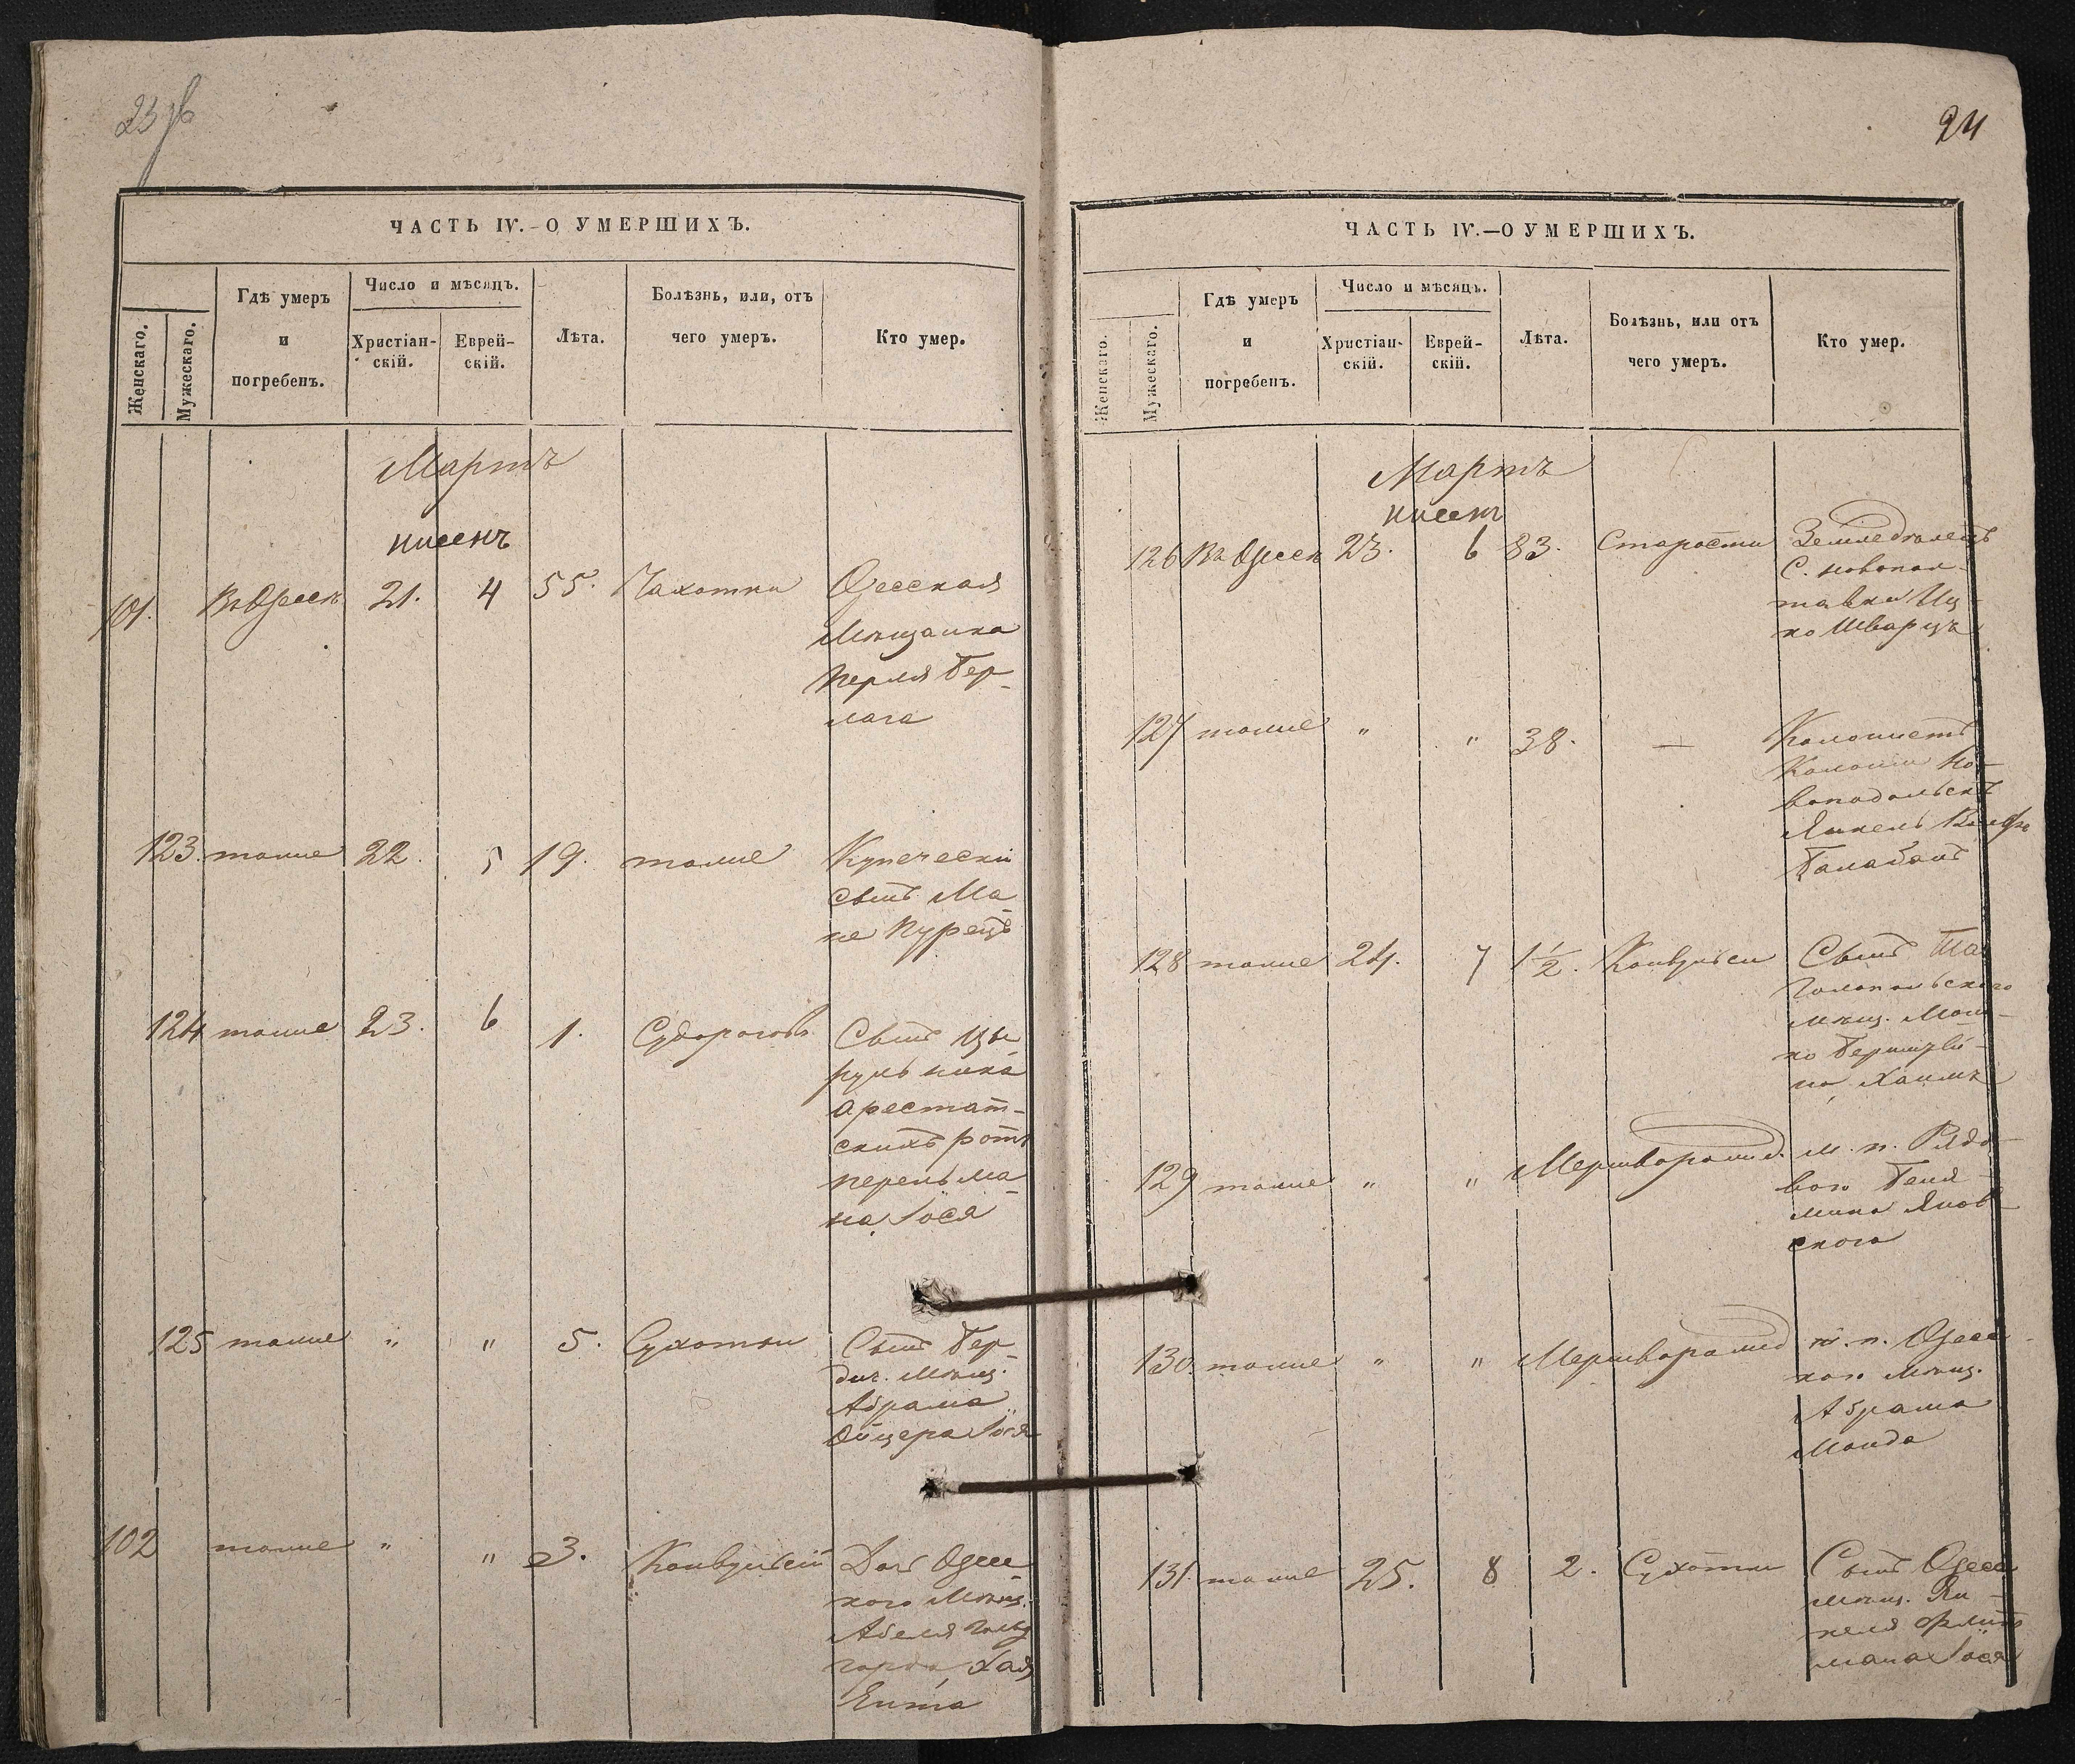 ЧАСТЬ IV.-О УМЕРШИХЪ.
Женскаго.
Мужескаго.
Гдѣ умеръ
и
погребенъ.
Число и мѣсяцъ.
Христіан-
скій.
Еврей-
скій.
Лѣта.
Болѣзнь, или, отъ
чего умеръ.
Кто умер.
Мартъ
нисенъ
101. Въ Одессѣ 21. 4 55. Чахотки Одесская
Мѣщанка
Перля Бер-
лага
123. тоже 22. 5 19. тоже Купечески
сынъ Ма-
не Пурецъ
124 тоже 23. 6 1. Судорогов Сынъ Цы-
рульника
арестат-
скихъ ротъ
Перельма-
на, Іося
125 тоже " " 5. Сухотки Сынъ Бер-
дич. Мѣщ.
Абрама
Ойцера Іося
102 тоже " " 3. Конвульсій Дочь Одесс-
кого Мѣщ.
Абеля
Хая
Ента
24
ЧАСТЬ IV.—О УМЕРШИХЪ.
Женскаго.
Мужескаго.
Гдѣ умеръ
и
погребенъ.
Число и мѣсяцъ.
Христіан-
скій.
Еврей-
скій.
Лѣта.
Болѣзнь, или отъ
чего умеръ.
Кто умер.
Мартъ
нисенъ
126 Въ Одессѣ 23. 6 83. Старости Земледѣлецъ
С. Новопол-
тавки Иц-
ко Шварцъ
127 тоже " " 38. — Колонистъ
Колоніи Но-
воподольскъ
Янкель Вольфъ
Балабанъ
128 тоже 24. 7 1½. Конвульси Сынъ
польского
мѣщ. Мош-
ко
Хаимъ
129 тоже " " Мертворожд. м. п. Рядо-
вого Беня-
мина Янов-
ского
130. тоже " " Мертворожд м. п. Одесс-
кого Мѣщ.
Абрама
Монда
131. тоже 25. 8 2. Сухотки Сынъ Одесс
мѣщ. Ян-
келя
мана Іося